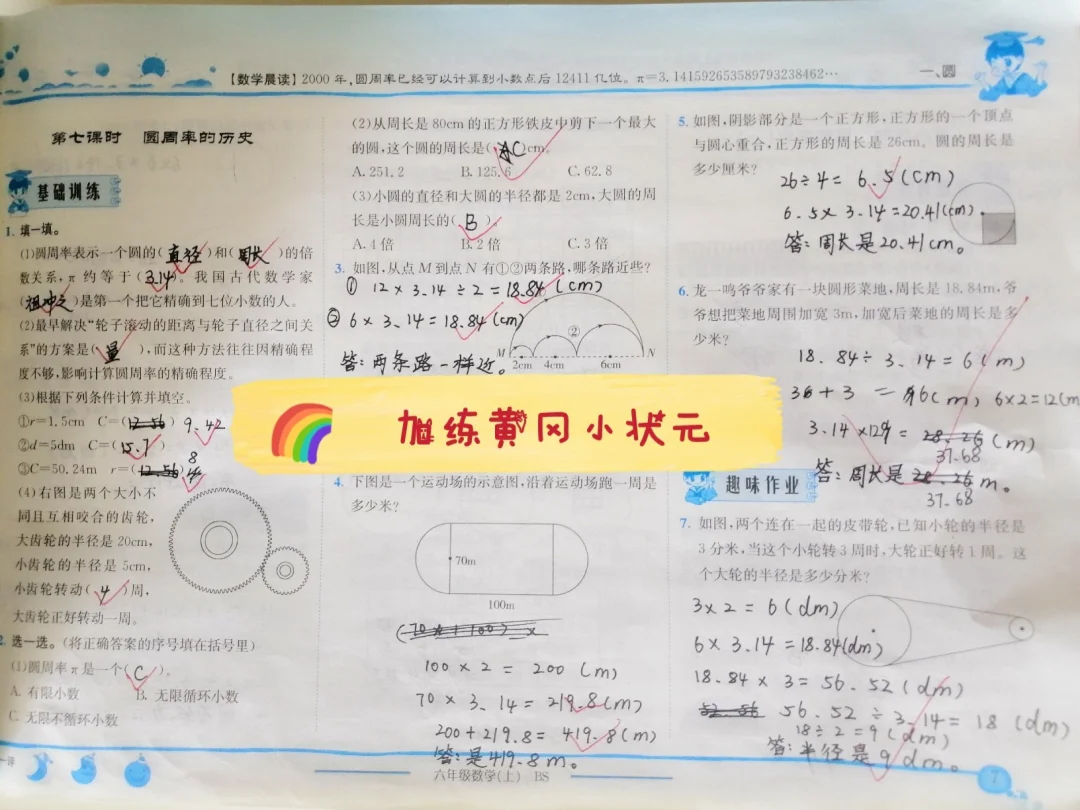 【数学晨读】2000年,圆周率已经可以计算到小数点后12411亿位。π=3.141592653589793238462…
一、圆
第七课时 圆周率的历史
基础训练
1. 填一填。
(1)圆周率表示一个圆的(直径)和(周长)的倍
数关系,π约等于(3.14)。我国古代数学家
(祖冲之)是第一个把它精确到七位小数的人。
(2)最早解决“轮子滚动的距离与轮子直径之间关
系”的方案是(量),而这种方法往往因精确程
度不够,影响计算圆周率的精确程度。
(3)根据下列条件计算并填空。
①r=1.5cm C=(12.56) 9.42
②d=5dm C=(15.7)
③C=50.24m r=(12.56) 8
(4)右图是两个大小不
同且互相咬合的齿轮,
大齿轮的半径是20cm,
小齿轮的半径是5cm,
小齿轮转动(4)周,
大齿轮正好转动一周。
2. 选一选。(将正确答案的序号填在括号里)
(1)圆周率π是一个(C)。
A. 有限小数 B. 无限循环小数
C. 无限不循环小数
(2)从周长是80cm的正方形铁皮中剪下一个最大
的圆,这个圆的周长是(C)cm。
A. 251.2 B. 125.6 C. 62.8
(3)小圆的直径和大圆的半径都是2cm,大圆的周
长是小圆周长的(B)。
A. 4倍 B. 2倍 C. 3倍
3. 如图,从点M到点N有①②两条路,哪条路近些?
① 12×3.14÷2=18.84(cm)
② 6×3.14=18.84(cm)
②
答:两条路一样近。
M 2cm 4cm 6cm N
加练黄冈小状元
4. 下图是一个运动场的示意图,沿着运动场跑一周是
多少米?
70m
100m
100×2=200(m)
70×3.14=219.8(m)
200+219.8=419.8(m)
答:是419.8m。
六年级数学(上) BS
5. 如图,阴影部分是一个正方形,正方形的一个顶点
与圆心重合,正方形的周长是26cm。圆的周长是
多少厘米?
26÷4=6.5(cm)
6.5×3.14=20.41(cm)
答:周长是20.41cm。
6. 龙一鸣爷爷家有一块圆形菜地,周长是18.84m,爷
爷想把菜地周围加宽3m,加宽后菜地的周长是多
少米?
18.84÷3.14=6(m)
3+3=6(m) 6×2=12(m
3.14×12=28.26(m)
37.68
答:周长是28.26m。
37.68
趣味作业
7. 如图,两个连在一起的皮带轮,已知小轮的半径是
3分米,当这个小轮转3周时,大轮正好转1周。这
个大轮的半径是多少分米?
3×2=6(dm)
6×3.14=18.84(dm)
18.84×3=56.52(dm)
52.56 56.52÷3.14=18(dm)
18÷2=9(dm)
答:半径是9dm。
7